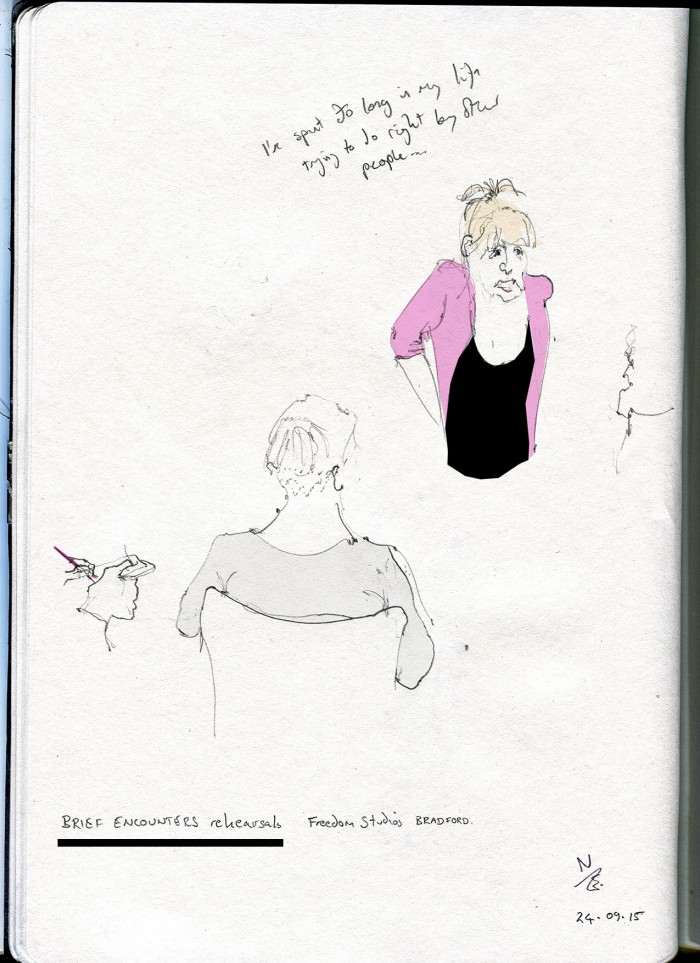 I've spent so long in my life
trying to do right by other
people~~
BRIEF ENCOUNTERS rehearsals Freedom Studios BRADFORD.
N
24.09.15